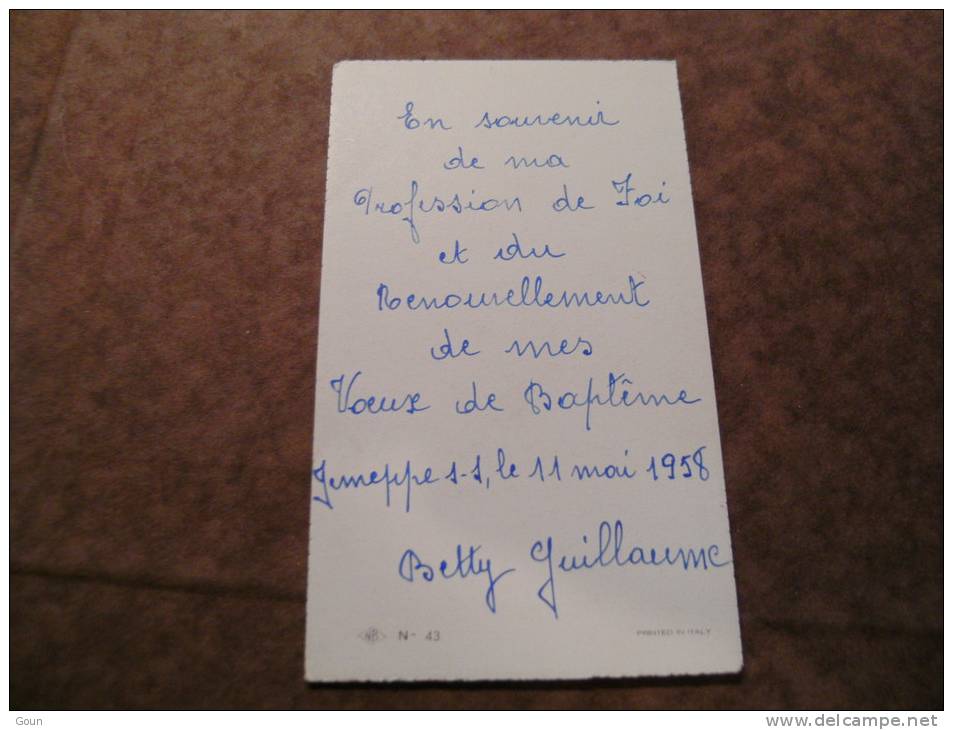 En souvenir
de ma
Profession de Foi
et du
Renouvellement
de mes
Vœux de Baptême
Jemeppe s-s, le 11 mai 1958
Betty Guillaume
N- 43
PRINTED IN ITALY
Goun
www.delcampe.net